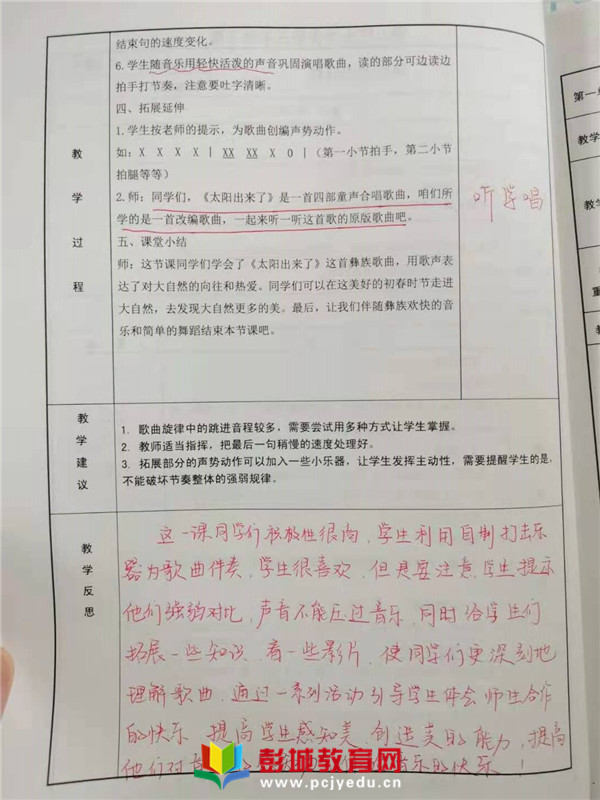 结束句的速度变化。
6.学生随音乐用轻快活泼的声音巩固演唱歌曲，读的部分可边读边
拍手打节奏，注意要吐字清晰。
四、拓展延伸
1.学生按老师的提示，为歌曲创编声势动作。
如：X X X X | XX XX X 0 |（第一小节拍手，第二小节
拍腿等等）
2.师：同学们，《太阳出来了》是一首四部童声合唱歌曲，咱们所
学的是一首改编歌曲，一起来听一听这首歌的原版歌曲吧。
五、课堂小结
师：这节课同学们学会了《太阳出来了》这首彝族歌曲，用歌声表
达了对大自然的向往和热爱。同学们可以在这美好的初春时节走进
大自然，去发现大自然更多的美。最后，让我们伴随彝族欢快的音
乐和简单的舞蹈结束本节课吧。
教
学
过
程
听 学唱
教
学
建
议
1. 歌曲旋律中的跳进音程较多，需要尝试用多种方式让学生掌握。
2. 教师适当指挥，把最后一句稍慢的速度处理好。
3. 拓展部分的声势动作可以加入一些小乐器，让学生发挥主动性，需要提醒学生的是，
不能破坏节奏整体的强弱规律。
教
学
反
思
这一课同学们积极性很高，学生利用自制打击乐
器为歌曲伴奏，学生很喜欢，但是要注意，学生提示
他们强弱对比，声音不能压过音乐，同时给学生们
拓展一些知识，看一些影片，使同学们更深刻地
理解歌曲，通过一系列活动引导学生体会师生合作
的快乐，提高学生感知美，创造美的能力，提高
他们对音
音乐的快乐！
第一单
教学
教学
重
教
彭城教育网
www.pcjyedu.cn